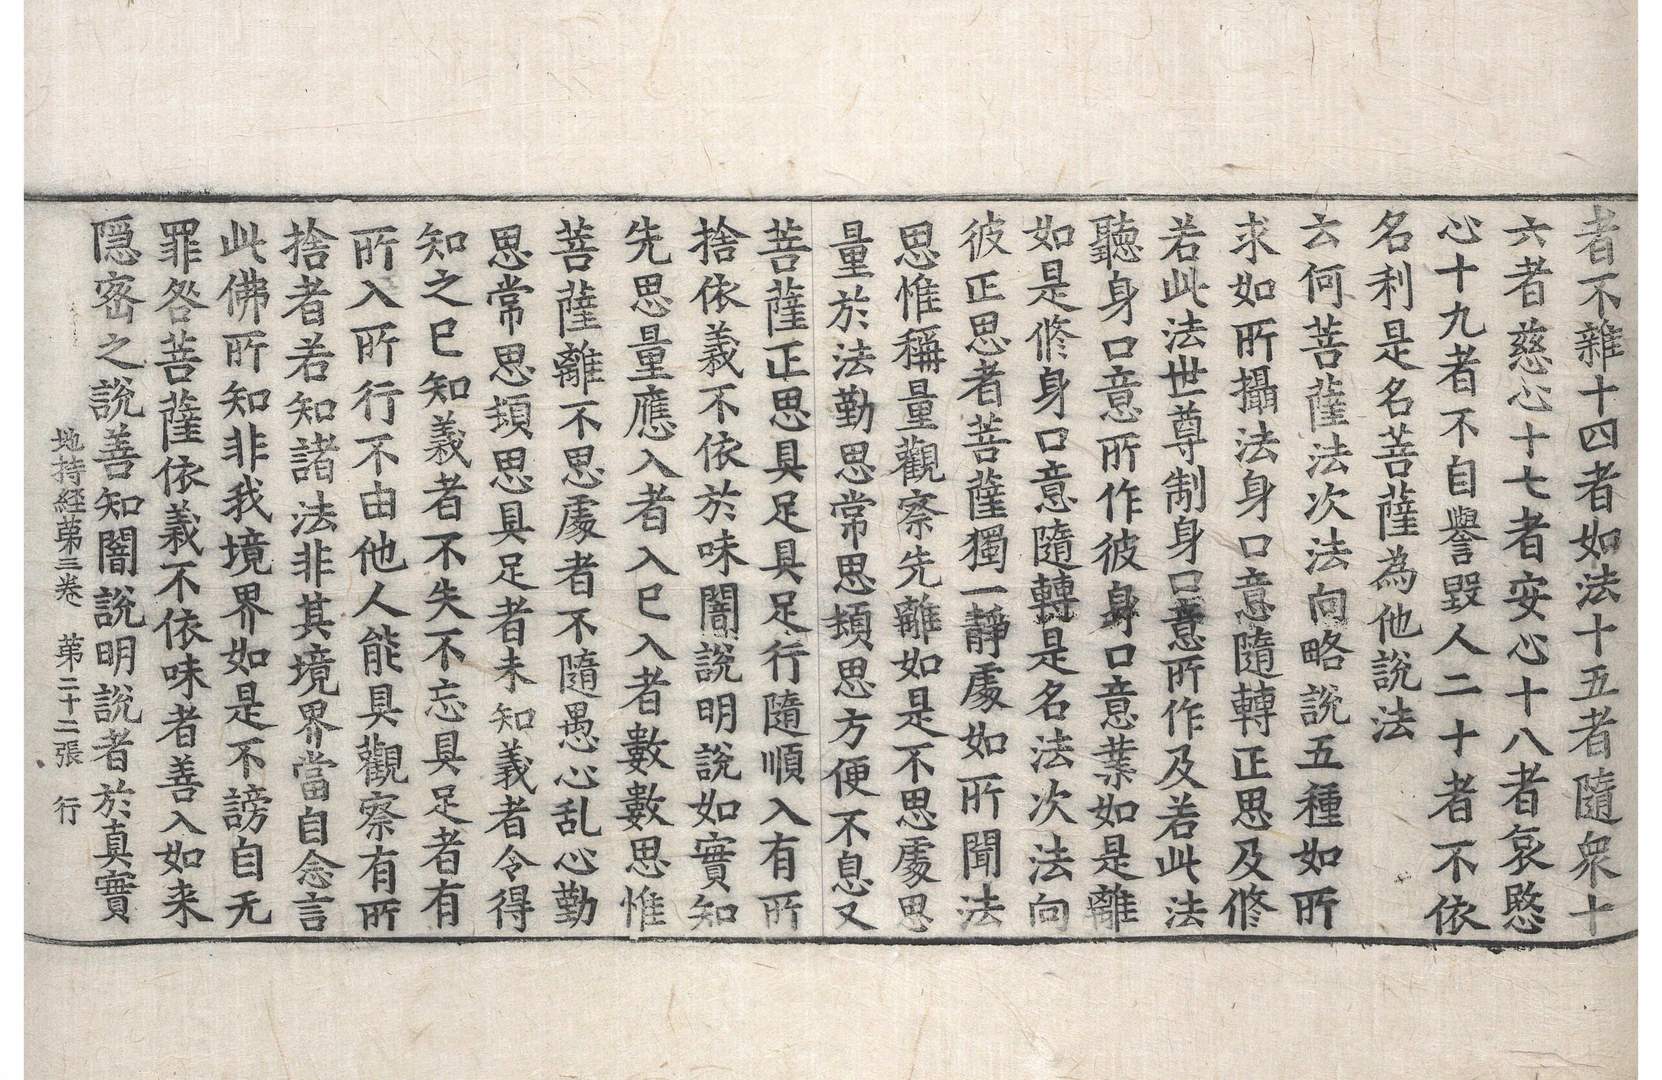 者不雜十四者如法十五者隨衆十
六者慈心十七者安心十八者哀愍
心十九者不自譽毀人二十者不依
名利是名菩薩為他說法
云何菩薩法次法向略說五種如所
求如所攝法身口意隨轉正思及修
若此法世尊制身口意所作及若此法
聽身口意所作彼身口意業如是離
如是修身口意隨轉是名法次法向
彼正思者菩薩獨一靜處如所聞法
思惟稱量觀察先離如是不思處思
量於法勤思常思頻思方便不息又
菩薩正思具足具足行隨順入有所
捨依義不依於味闇說明說如實知
先思量應入者入已入者數數思惟
菩薩離不思處者不隨愚心乱心勤
思常思頻思具足者未知義者令得
知之已知義者不失不忘具足者有
所入所行不由他人能具觀察有所
捨者若知諸法非其境界當自念言
此佛所知非我境界如是不謗自无
罪咎菩薩依義不依味者善入如来
隱密之說善知闇說明說者於真實
地持經第三卷 第二十二張 行